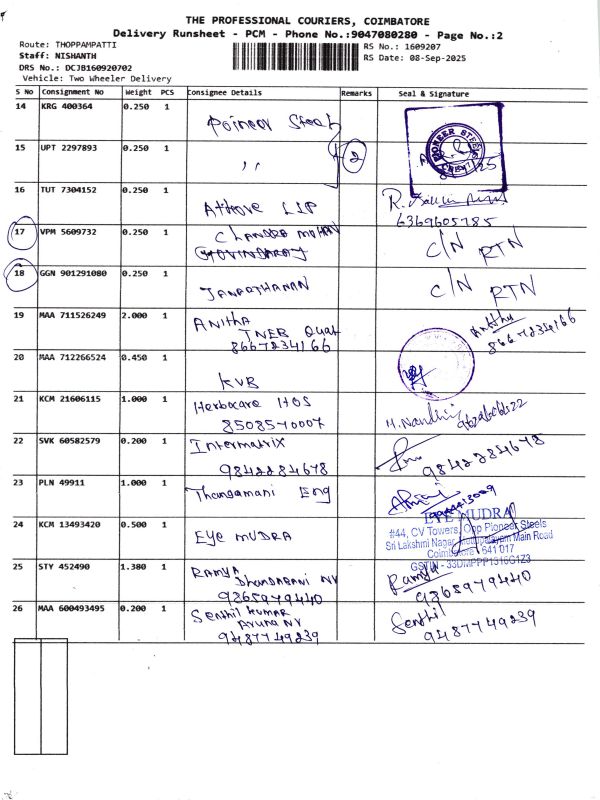 THE PROFESSIONAL COURIERS, COIMBATORE
Delivery Runsheet - PCM - Phone No.:9047080280 - Page No.:2
Route: THOPPAMPATTI
RS No.: 1609207
Staff: NISHANTH
RS Date: 08-Sep-2025
DRS No.: DCJB160920702
Vehicle: Two Wheeler Delivery
S No Consignment No Weight PCS Consignee Details Remarks Seal & Signature
14 KRG 400364 0.250 1
Poineer Steel
PIONEER STEELS
15 UPT 2297893 0.250 1 ,, 2
16 TUT 7304152 0.250 1
Athove LLP
6369605785
17 VPM 5609732 0.250 1 CHANDRA MOHAN
GOVINDARAJ
C/N RTN
18 GGN 901291080 0.250 1
JANARTHANAN
C/N RTN
19 MAA 711526249 2.000 1 Anitha
TNEB Quat
8667234166
8667234166
20 MAA 712266524 0.450 1
KVB
21 KCM 21606115 1.000 1 Herbocare HOS
8508570007
M. Nandhini
22 SVK 60582579 0.200 1 Intermatrix
9842284678
9842284678
23 PLN 49911 1.000 1 Thangamani Eng
24 KCM 13493420 0.500 1
Eye MUDRA
EYE MUDRA
#44, CV Towers, Opp Pioneer Steels
Sri Lakshmi Nagar, Main Road
Coimbatore - 641 017
GSTIN - 33DMPPP1316G1Z3
25 STY 452490 1.380 1 RAMYA
NV
9365979440
Ramya
9365979440
26 MAA 600493495 0.200 1 Senthil Kumar
Aruna NV
9487749239
Senthil
9487749239